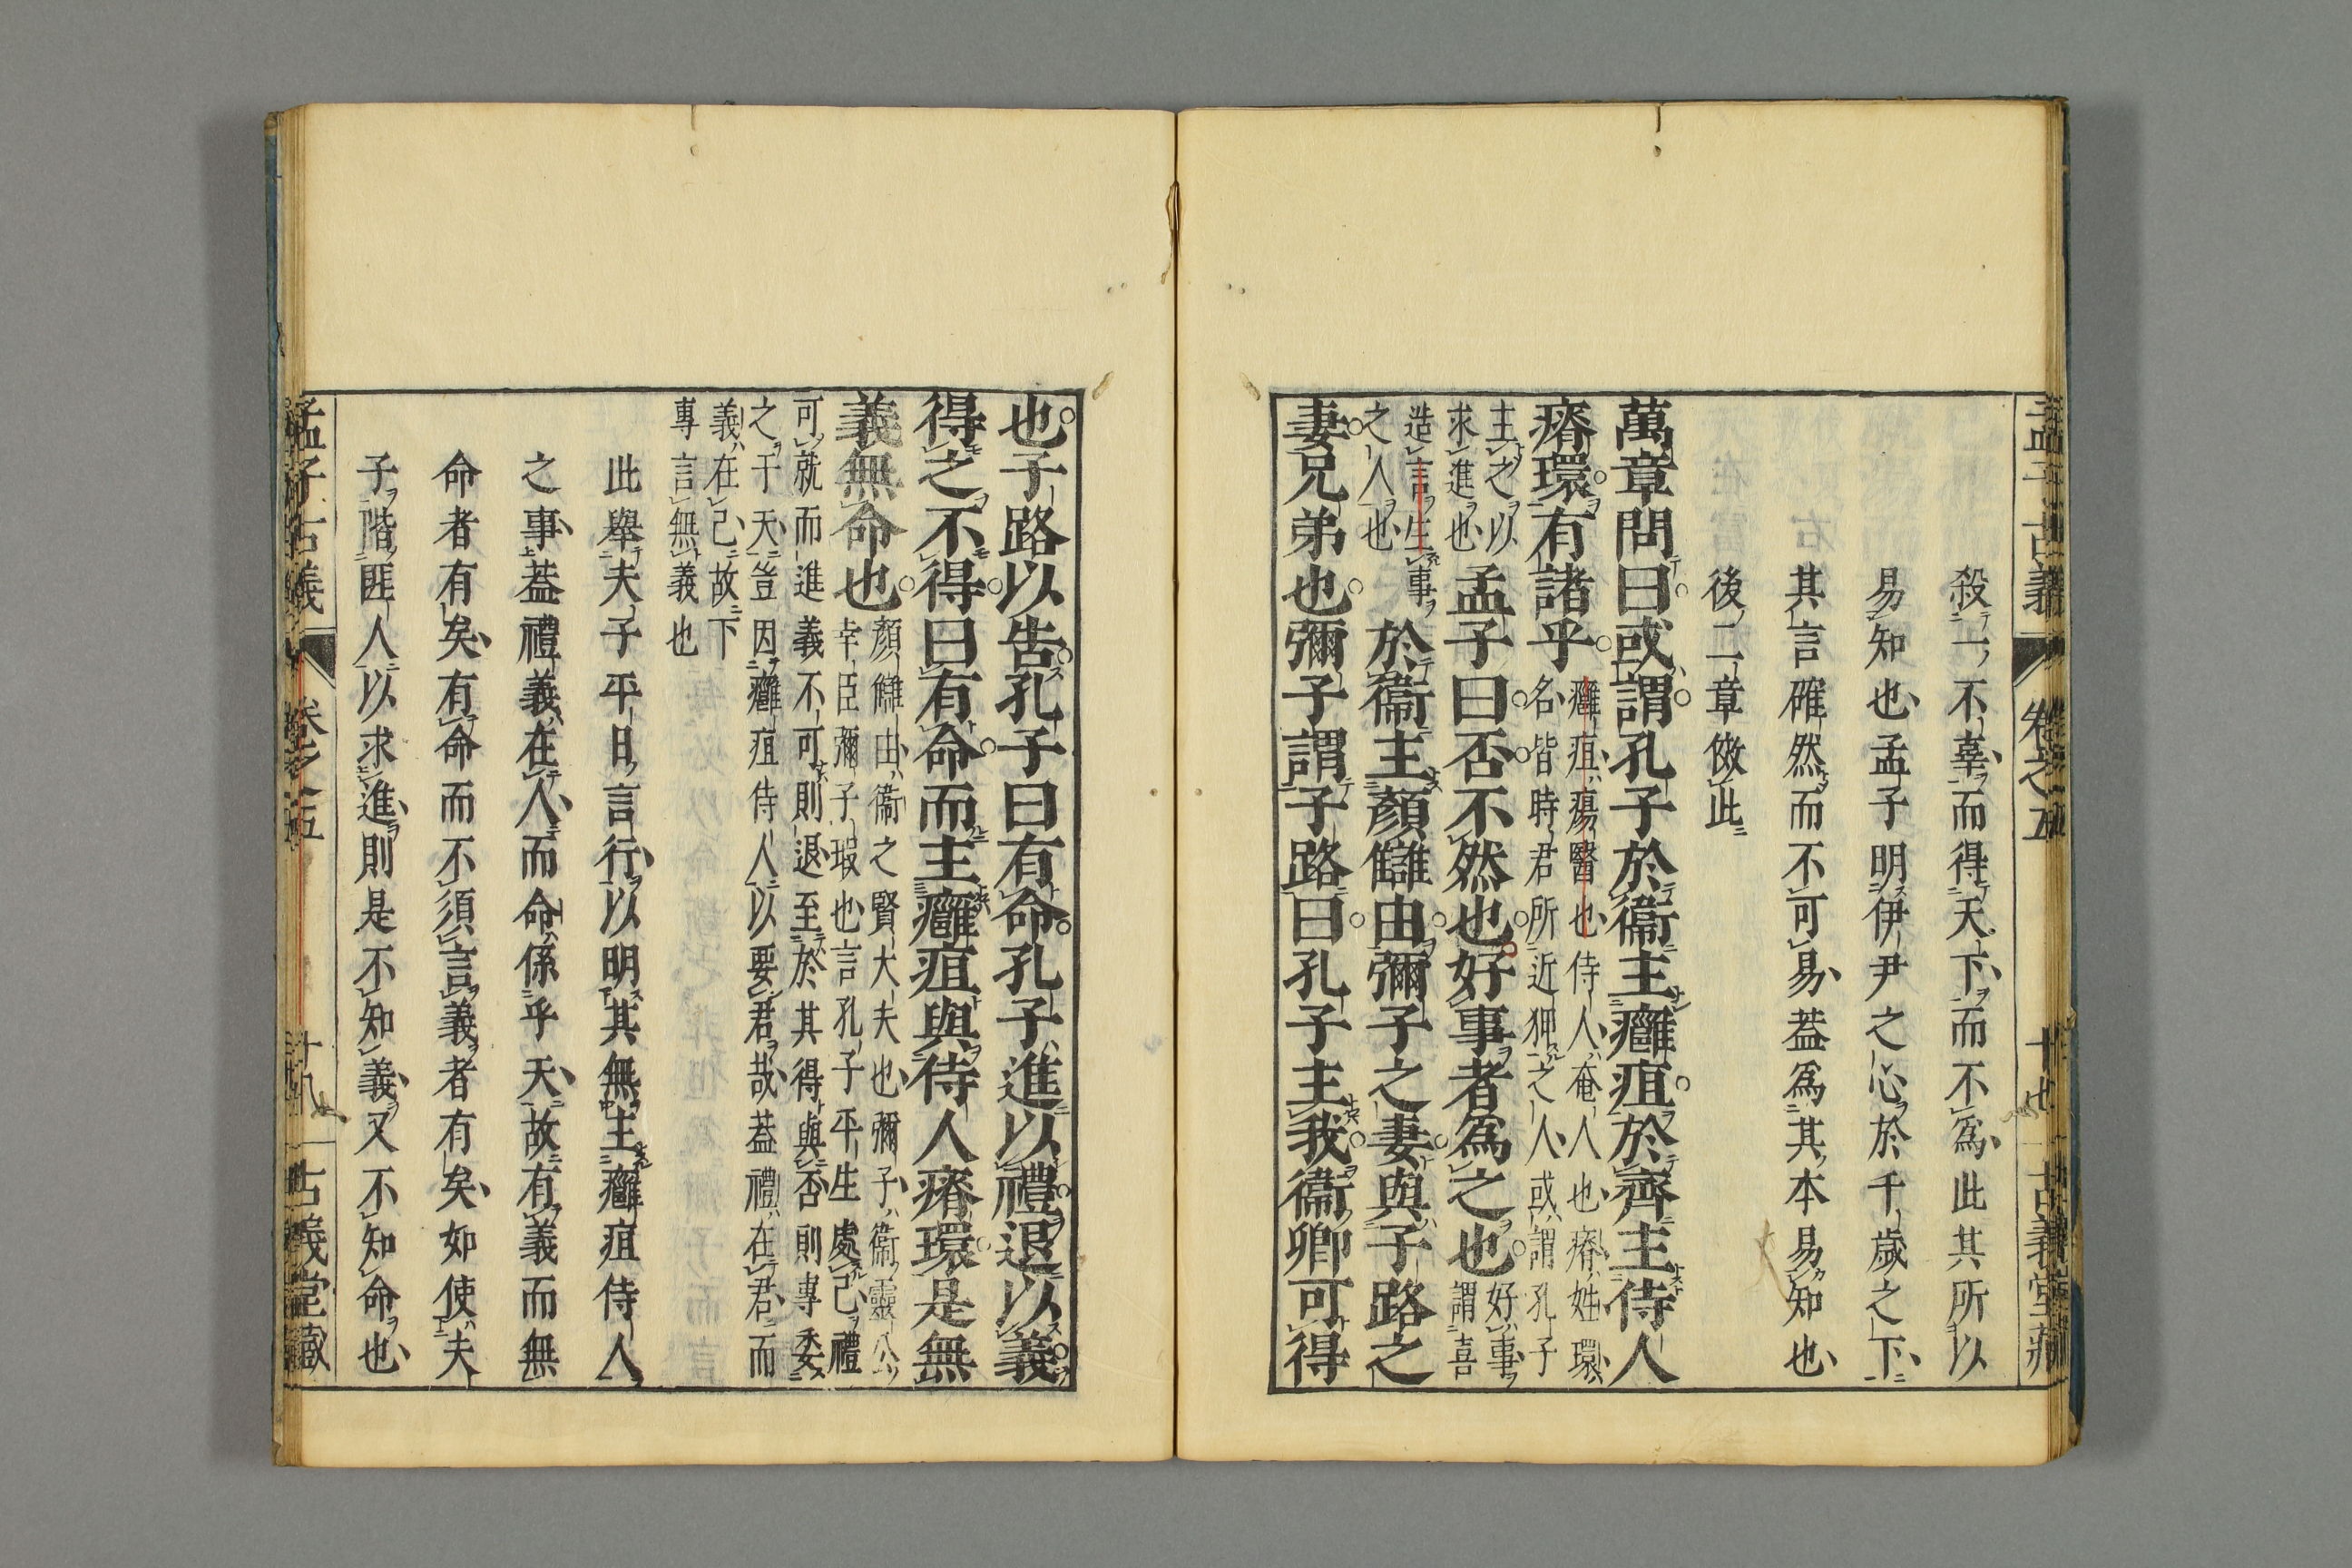 殺一不辜而得天下而不為此其所以
易知也孟子明伊尹之心於千歲之下
其言確然而不可易蓋為其本易知也
後二章倣此
萬章問曰或謂孔子於衞主癰疽於齊主侍人
瘠環有諸乎
癰疽瘍醫也侍人奄人也瘠姓環
名皆時君所近狎之人或謂孔子
主之以
求進也
孟子曰否不然也好事者為之也
好事
謂喜
造言生事
之人也
於衞主顏讎由彌子之妻與子路之
妻兄弟也彌子謂子路曰孔子主我衞卿可得
也子路以告孔子曰有命孔子進以禮退以義
得之不得曰有命而主癰疽與侍人瘠環是無
義無命也
顏讎由衞之賢大夫也彌子衞靈公
幸臣彌子瑕也言孔子平生處己禮
可就而進義不可則退至於其得與否則專委
之于天豈因癰疽侍人以要君哉蓋禮在君而
義在己故下
專言無義也
此舉夫子平日言行以明其無主癰疽侍人
之事蓋禮義在人而命係乎天故有義而無
命者有矣有命而不須言義者有矣如使夫
子階匪人以求進則是不知義又不知命也
孟子古義 卷之五 十九 古義堂藏